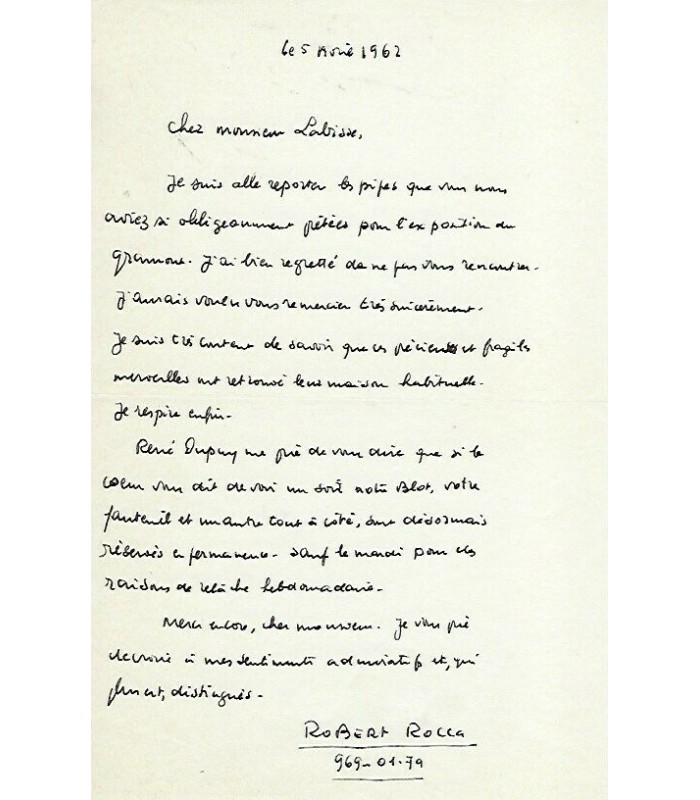 le 5 Avril 1962
Cher monsieur Labisse,
Je suis allé reporter les pipes que vous nous
aviez si obligeamment prêtées pour l'exposition du
gramont. J'ai bien regretté de ne pas vous rencontrer.
J'aurais voulu vous remercier très sincèrement.
Je suis très content de savoir que ces précieuses et fragiles
merveilles ont retrouvé leur maison habituelle.
Je respire enfin.
René Dupuy me prie de vous dire que si le
coeur vous dit de voir un soir notre Slot, votre
fauteuil et un autre tout à côté, sont désormais
réservés en permanence. Sauf le mardi pour des
raisons de relâche hebdomadaire.
Merci encore, cher monsieur. Je vous prie
de croire à mes sentiments admiratifs et, qui
plus est, distingués.
ROBERT ROCCA
969-01.79